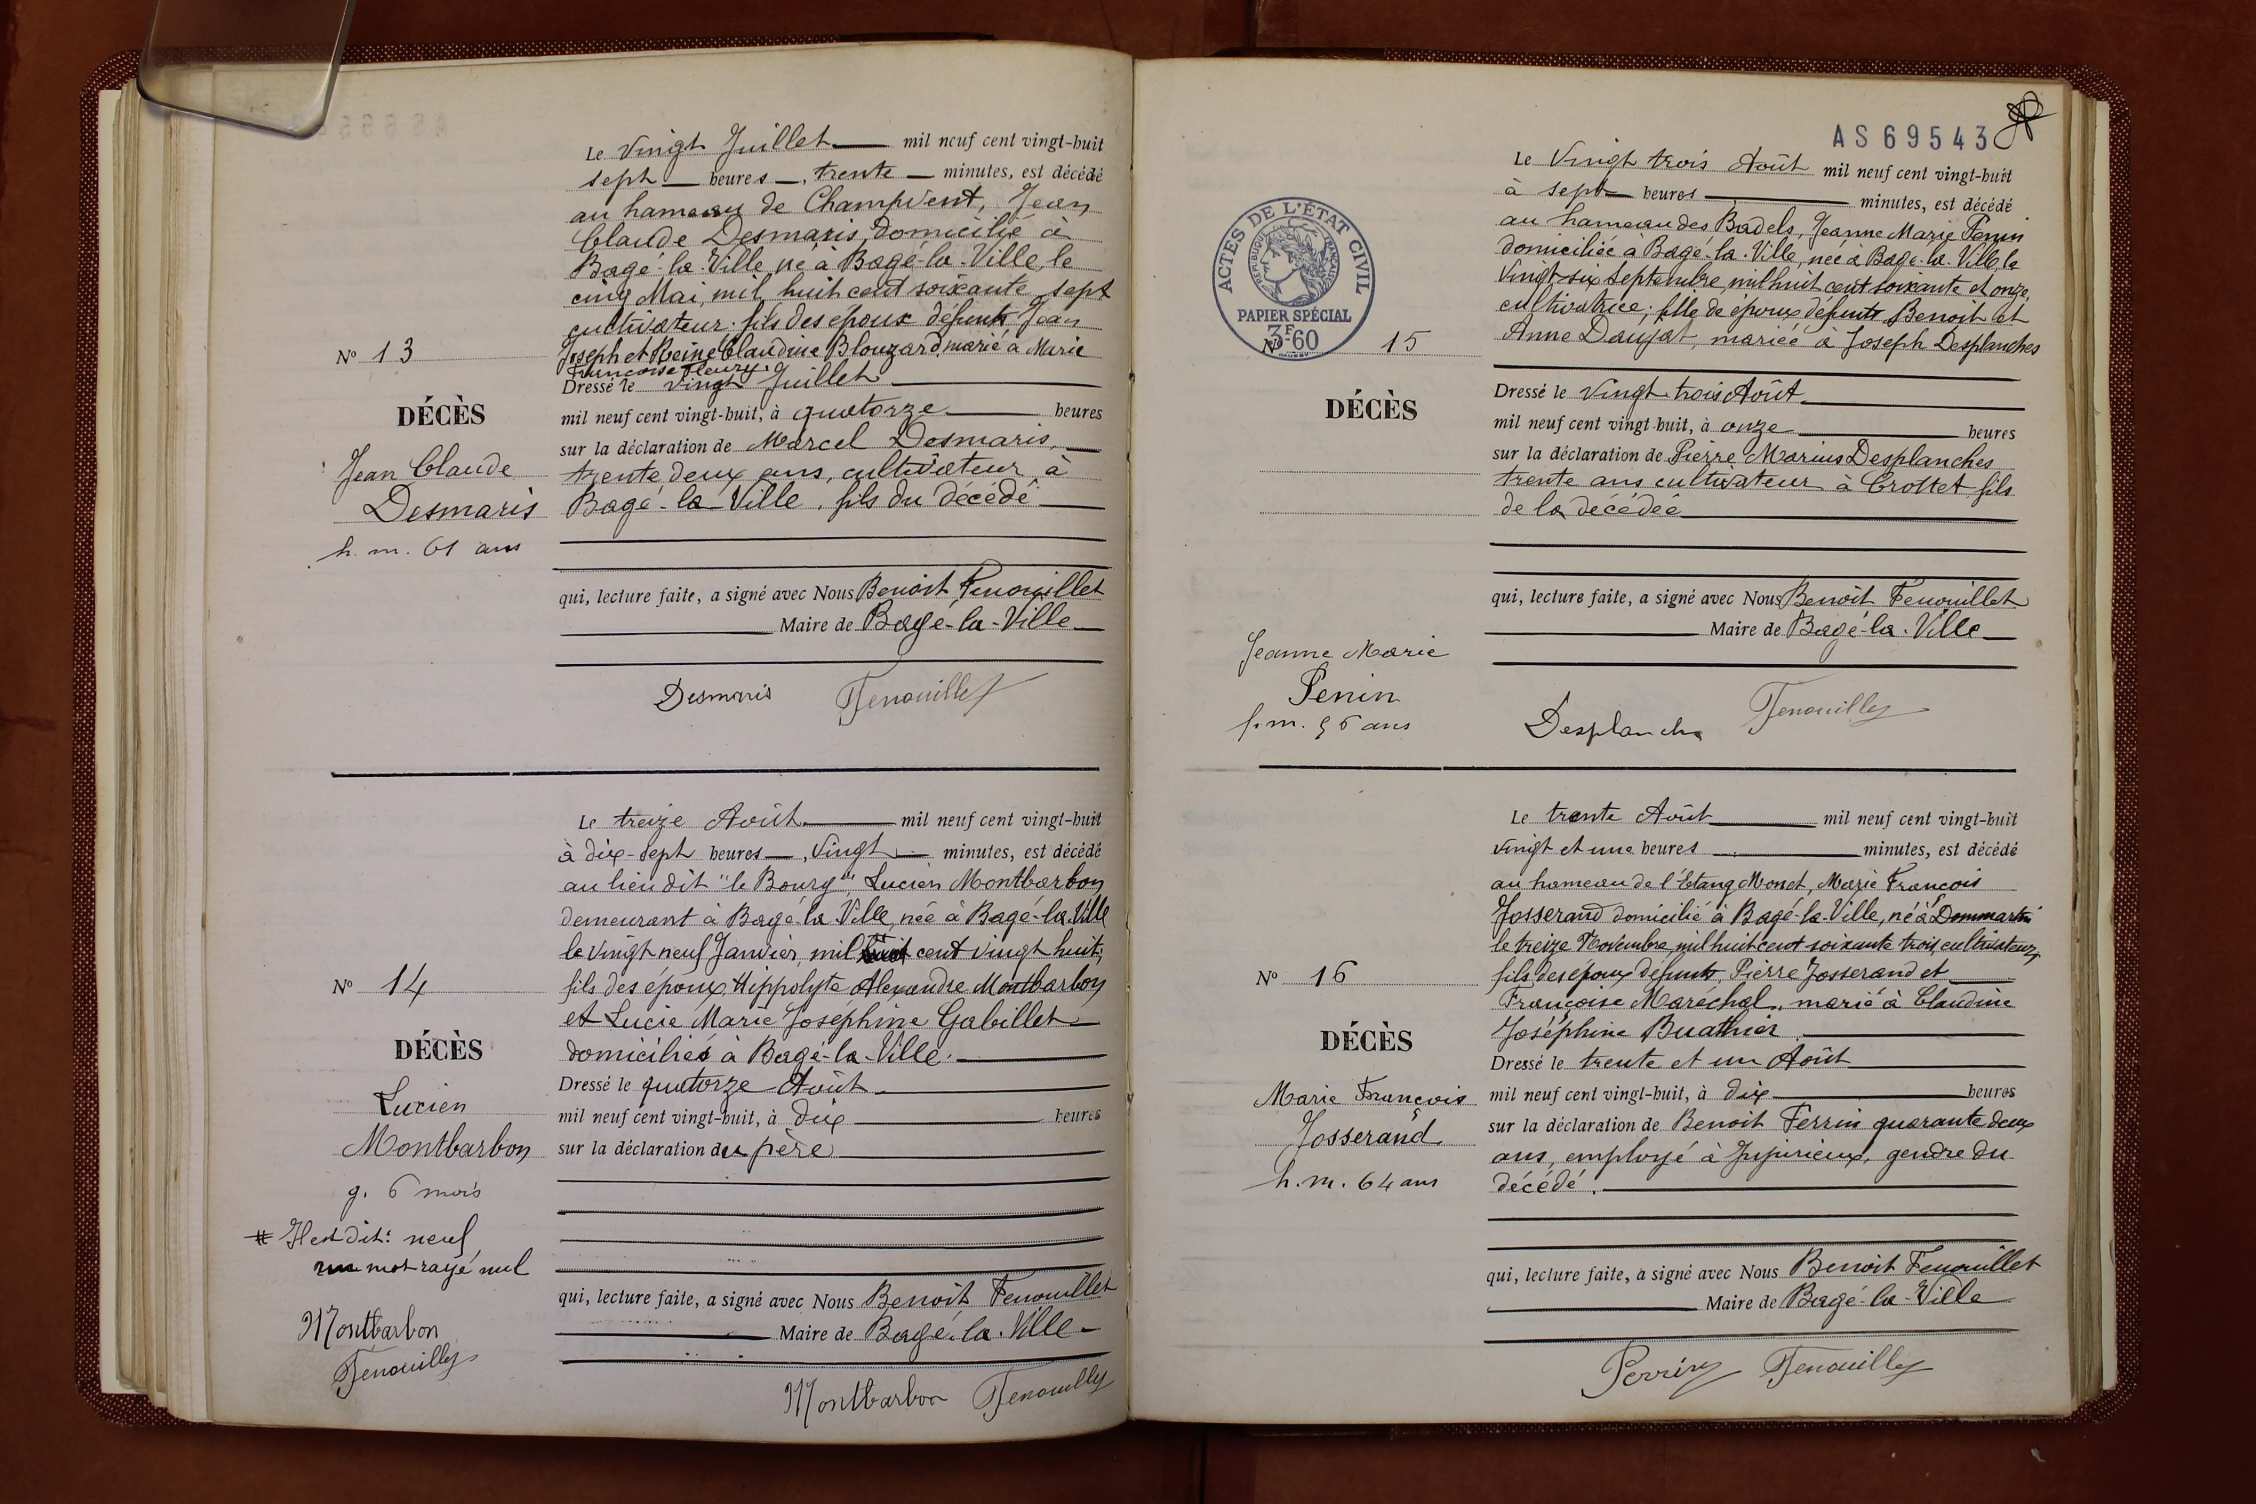 Le vingt Juillet mil neuf cent vingt-huit
sept heures, trente minutes, est décédé
au hameau de Champvent, Jean
Claude Desmaris, domicilié à
Bagé-la-Ville, né à Bagé-la-Ville, le
cinq Mai, mil huit cent soixante sept
cultivateur, fils des époux défunts Jean
Joseph et Reine Claudine Blouzard, marié à Marie
Françoise Fleury.
Nº 13
DÉCÈS
Jean Claude
Desmaris
h. m. 61 ans
Dressé le vingt Juillet
mil neuf cent vingt-huit, à quatorze heures
sur la déclaration de Marcel Desmaris,
trente deux ans, cultivateur à
Bagé-la-Ville, fils du décédé
qui, lecture faite, a signé avec Nous Benoit Fenouillet
Maire de Bagé-la-Ville
Desmaris Fenouillet
Le treize Août mil neuf cent vingt-huit
à dix-sept heures, vingt minutes, est décédé
au lieu dit "le Bourg", Lucien Montbarbon
demeurant à Bagé-la-Ville, née à Bagé-la-Ville
le vingt neuf Janvier mil huit cent vingt huit,
fils des époux Hippolyte Alexandre Montbarbon
et Lucie Marie Joséphine Gabillet
domiciliés à Bagé-la-Ville.
Nº 14
DÉCÈS
Lucien
Montbarbon
g. 6 mois
# Il est dit: neuf
un mot rayé nul
Montbarbon
Fenouillet
Dressé le quatorze Août
mil neuf cent vingt-huit, à dix heures
sur la déclaration du père
qui, lecture faite, a signé avec Nous Benoit Fenouillet
Maire de Bagé-la-Ville
Montbarbon Fenouillet
AS69543
ACTES DE L'ÉTAT CIVIL
RÉPUBLIQUE FRANÇAISE
PAPIER SPÉCIAL
3F60
Le vingt trois Août mil neuf cent vingt-huit
à sept heures minutes, est décédé
au hameau des Badels, Jeanne Marie Penin
domiciliée a Bagé-la-Ville, née à Bagé-la-Ville, le
vingt-six septembre, mil huit cent soixante et onze,
cultivatrice; fille de époux défunts Benoit et
Anne Daujat, mariée à Joseph Desplanches
Nº 15
DÉCÈS
Jeanne Marie
Penin
f. m. 56 ans
Dressé le vingt-trois Août
mil neuf cent vingt-huit, à onze heures
sur la déclaration de Pierre Marius Desplanches
trente ans cultivateur à Crottet fils
de la décédée
qui, lecture faite, a signé avec Nous Benoit Fenouillet
Maire de Bagé-la-Ville
Desplanche Fenouillet
Le trente Août mil neuf cent vingt-huit
vingt et une heures minutes, est décédé
au hameau de l'Etang Monet, Marie François
Josserand domicilié à Bagé-la-Ville, né à Dommartin
le treize Novembre, mil huit cent soixante trois, cultivateur,
fils des époux défunts, Pierre Josserand et
Françoise Maréchal, marié à Claudine
Joséphine Buathier
Nº 16
DÉCÈS
Marie François
Josserand
h. m. 64 ans
Dressé le trente et un Août
mil neuf cent vingt-huit, à dix heures
sur la déclaration de Benoit Perrin quarante deux
ans, employé à Jujurieux, gendre du
décédé.
qui, lecture faite, a signé avec Nous Benoit Fenouillet
Maire de Bagé-la-Ville
Perrin Fenouillet